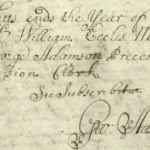 us ends the Year of
William Eccles M
George Adamson Precen
sion Clerk
Sic Subscribitur
Geo: Ada